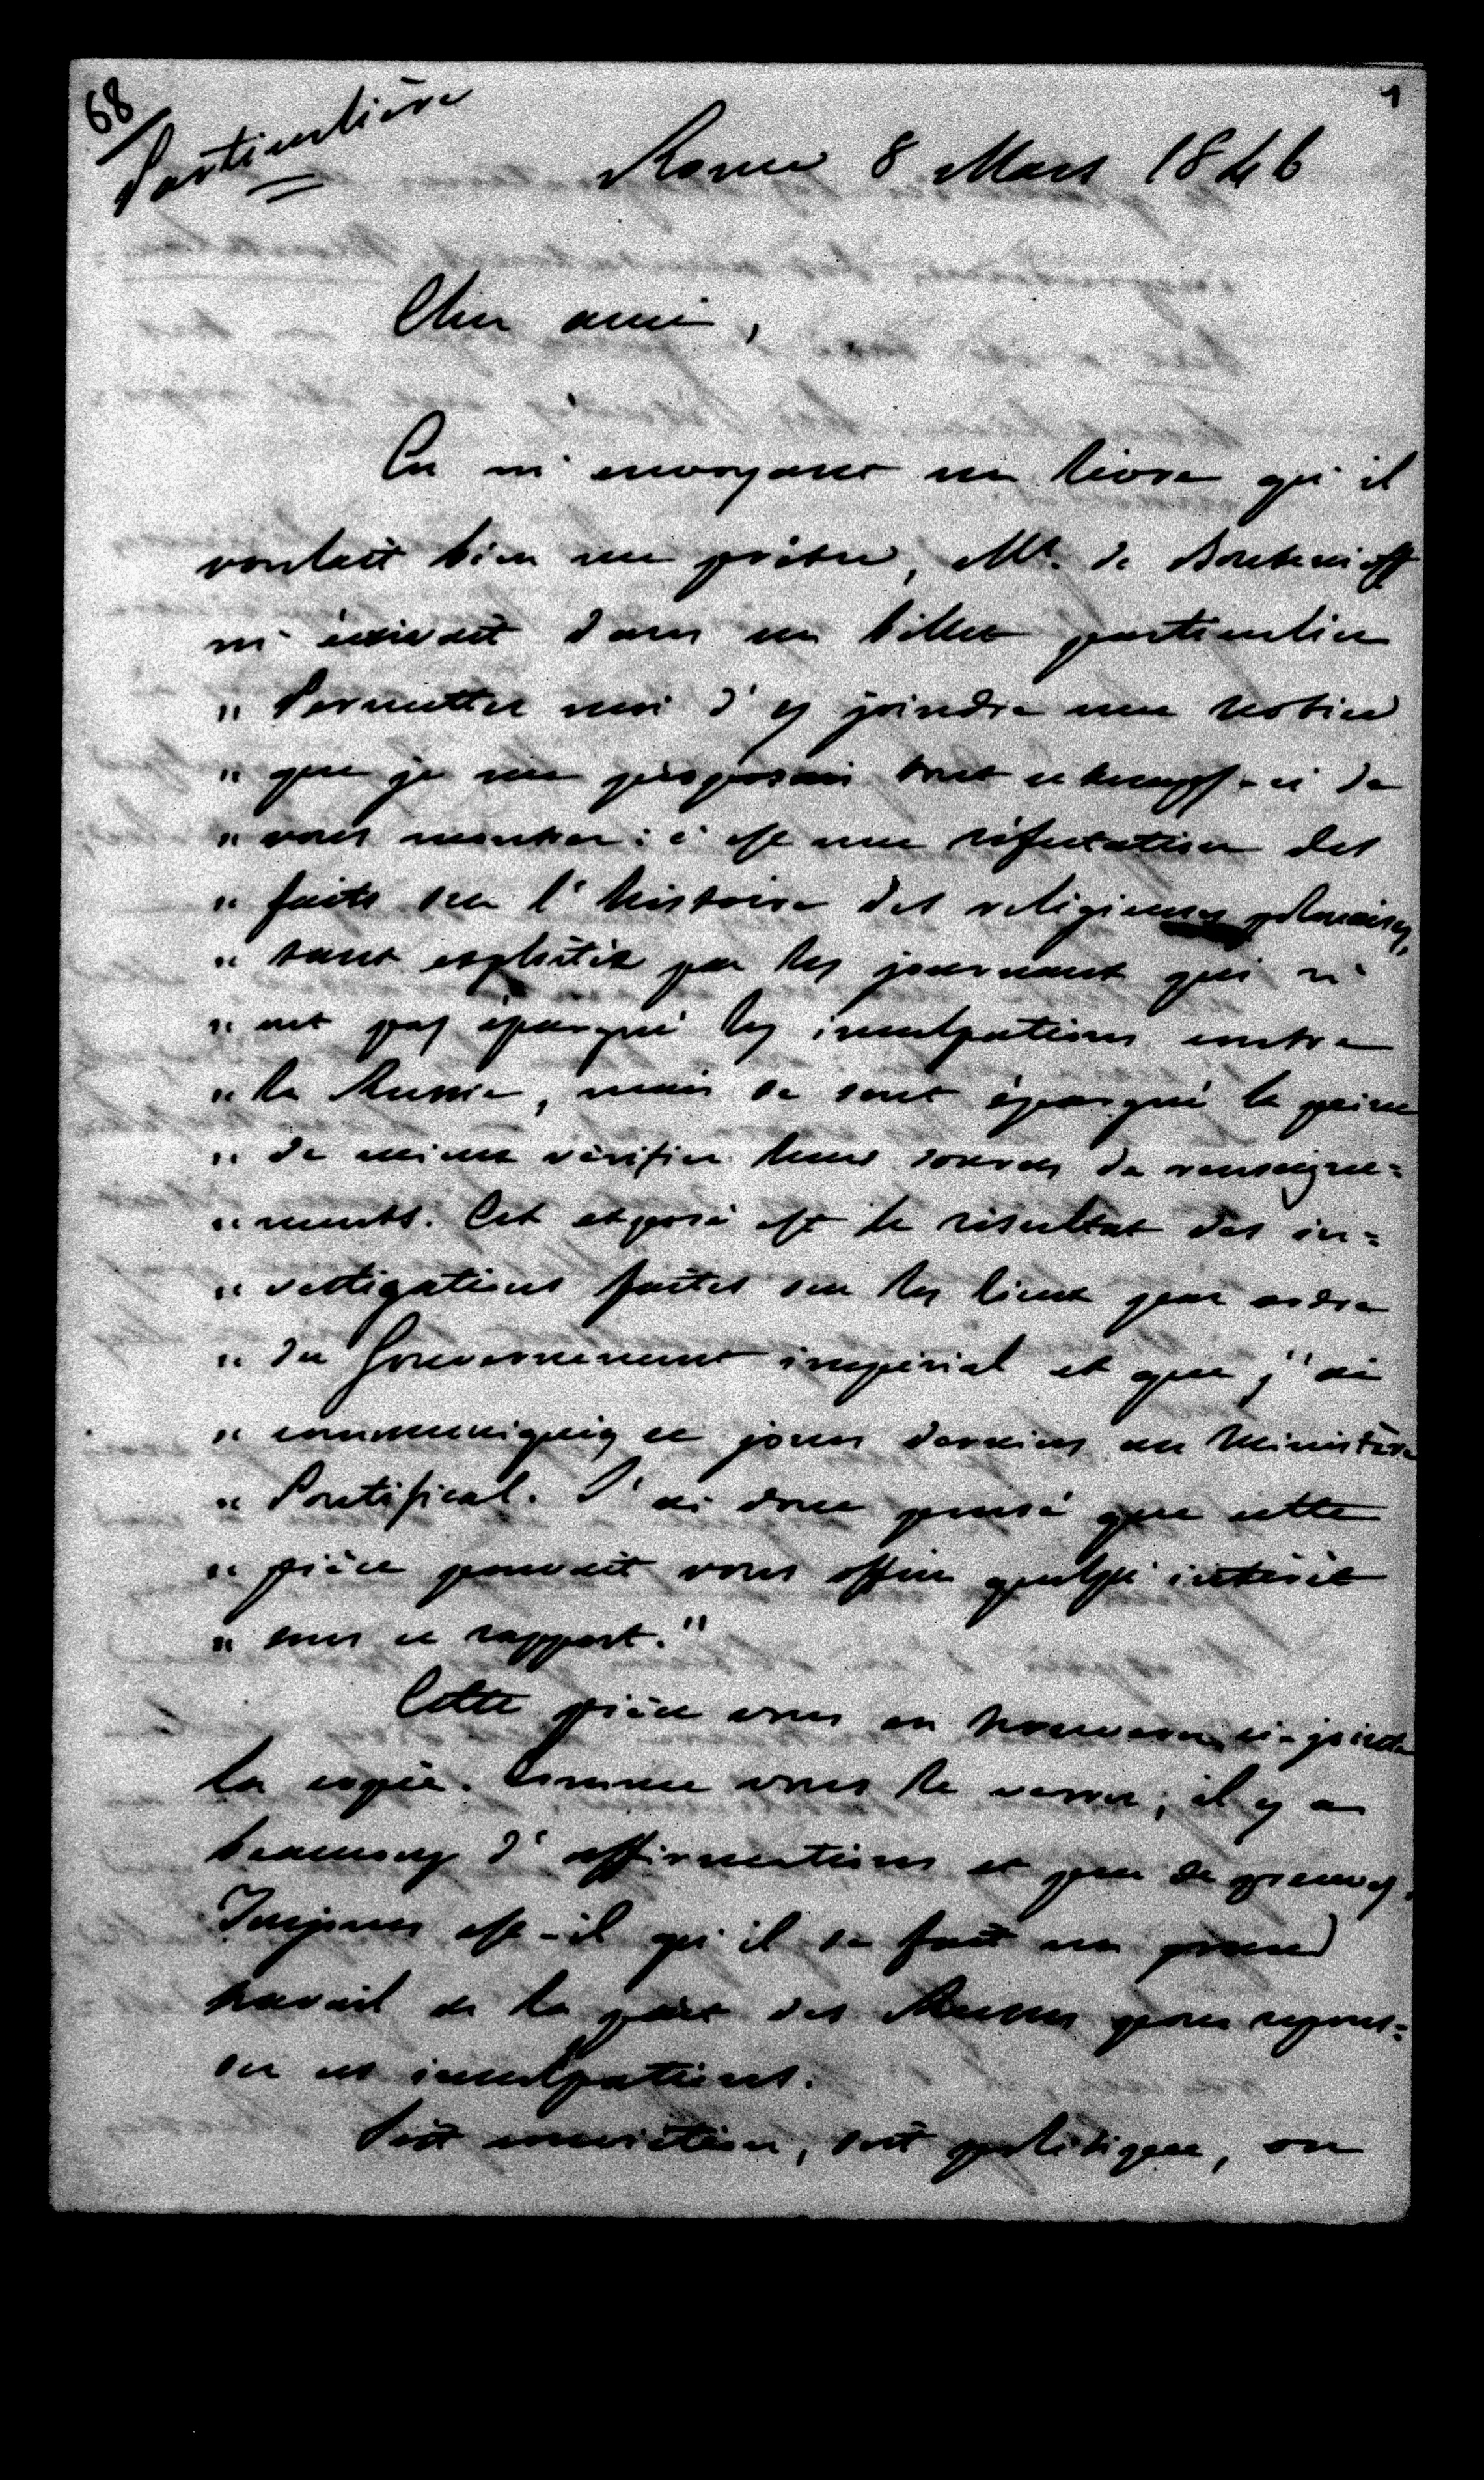 68
1
Particulière
Rome 8 Mars 1846
Cher ami,
En m'envoyant un livre qu'il
voulait bien me prêter, Mr. de Bouteneff
m'écrivait dans un billet particulier
" Permettez moi d'y joindre une notice
" que je me proposais tout ce temps-ci de
" vous montrer: c'est une réfutation des
" faits sur l'histoire des religieuses polonaises,
" tant exploitée par les journaux qui n'
" ont pas épargné les inculpations contre
" la Russie, mais se sont épargné la peine
" de mieux vérifier leurs sources de renseigne=
" ments. Cet exposé est le résultat des in=
" vestigations faites sur les lieux par ordre
" du Gouvernement impérial et que j'ai
" communiqué ces jours derniers au Ministère
" Pontifical. J'ai donc pensé que cette
" pièce pouvait vous offrir quelqu'intérêt
" sous ce rapport."
Cette pièce vous en trouverez ci-jointe
la copie. Comme vous le verrez, il y a
beaucoup d'affirmations et peu de preuves.
Toujours est-il qu'il se fait un grand
travail de la part des Russes pour repous=
ser ces inculpations.
Soit conviction, soit politique, on